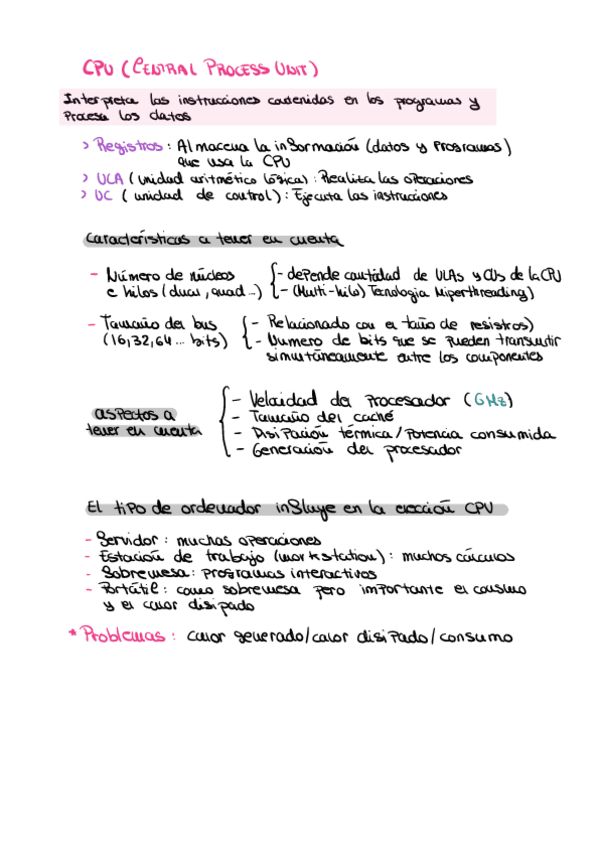 CPU (CENTRAL PROCESS UNIT)
Interpreta las instrucciones contenidas en los programas y
Procesa los datos
> Registros: Almacena la información (datos y Programas)
que usa la CPU
> ULA (unidad aritmético lógica): Realiza las operaciones
> UC (unidad de control): Ejecuta las instrucciones
Características a tener en cuenta
- Número de núcleos
e hilos (dual, quad...)
- depende cantidad de ULAs y CUs de la CPU
- (Multi-hilo) Tecnologia Hiperthreading)
- Tamaño del bus
(16, 32, 64... bits)
- Relacionado con el taño de registros)
- Numero de bits que se pueden transmitir
simultáneamente entre los componentes
aspectos a
tener en cuenta
- Velocidad del Procesador (GHz)
- Tamaño del caché
- Disipación térmica/Potencia consumida
- Generación del procesador
El tipo de ordenador influye en la elección CPU
- Servidor: muchas operaciones
- Estación de trabajo (workstation): muchos cálculos
- Sobremesa: programas interactivos
- Portátil: como sobremesa pero importante el consumo
y el calor disipado
* Problemas: calor generado/calor disipado/consumo